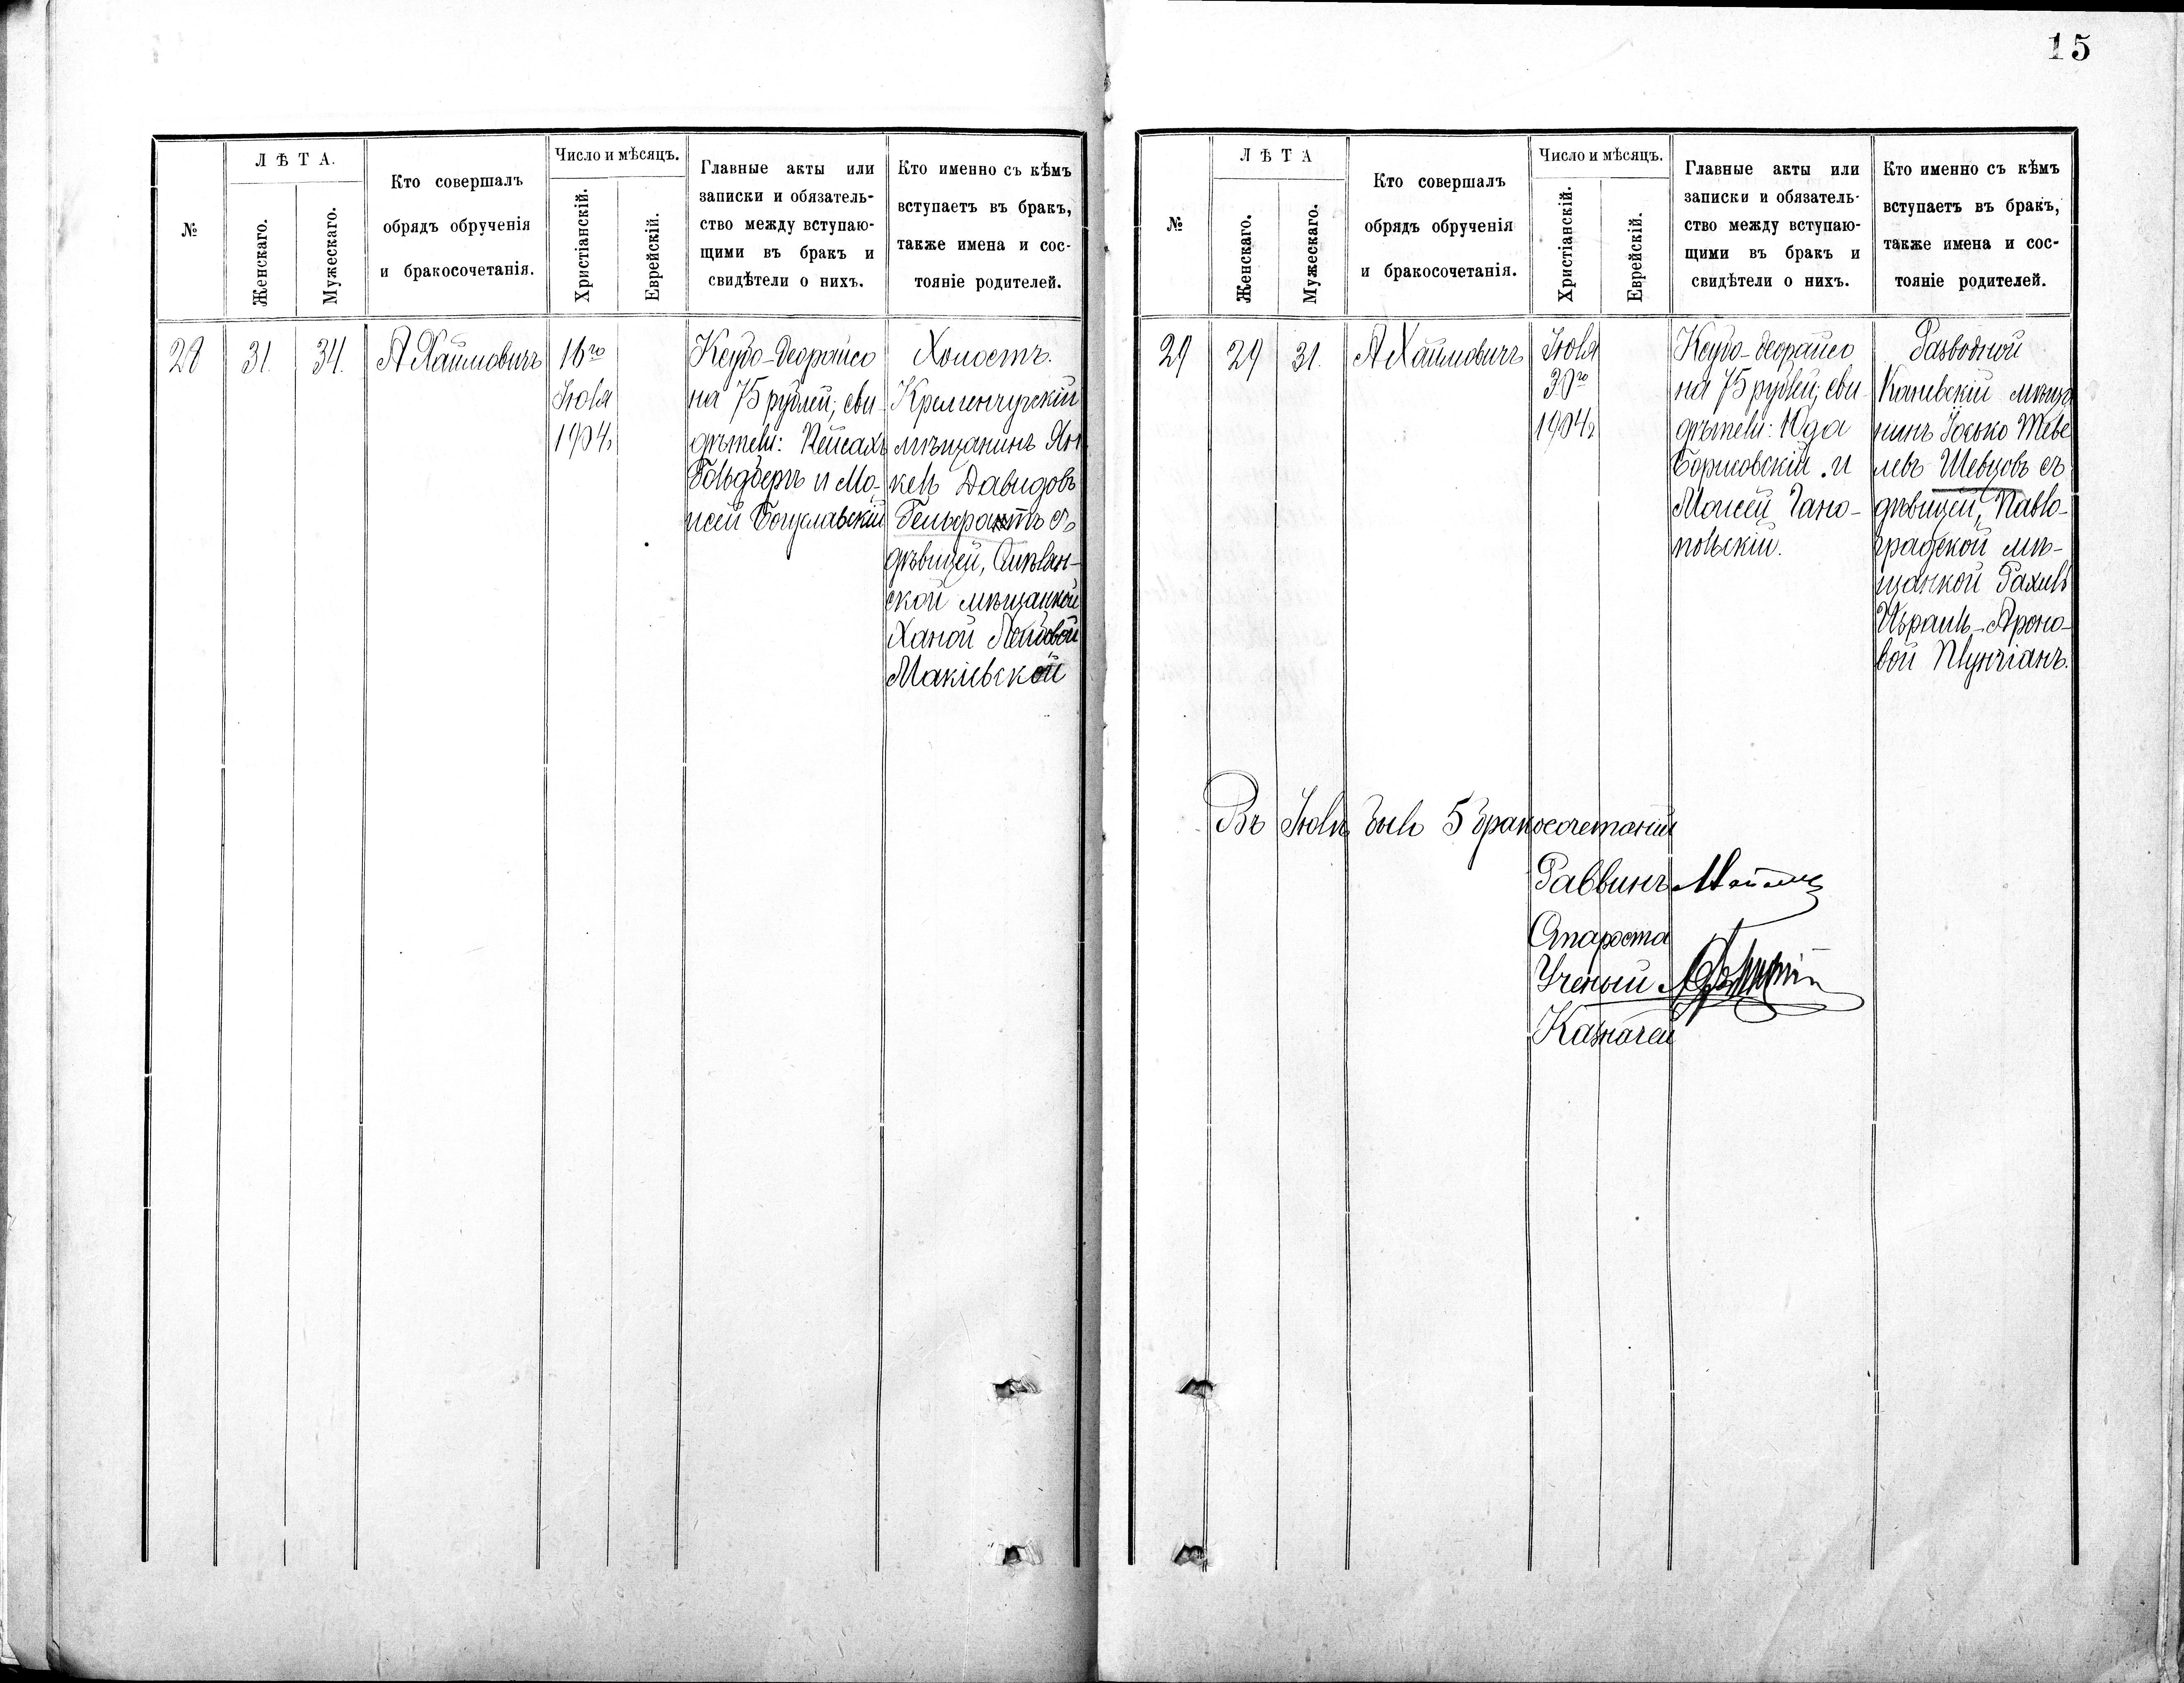 15
№
ЛѢТА.
Женскаго.
Мужескаго.
Кто совершалъ
обрядъ обрученія
и бракосочетанія.
Число и мѣсяцъ.
Христіанскій.
Еврейскій.
Главные акты или
записки и обязатель-
ство между вступаю-
щими въ бракъ и
свидѣтели о нихъ.
Кто именно съ кѣмъ
вступаетъ въ бракъ,
также имена и сос-
тояніе родителей.
28
31.
34.
А Хаимовичъ
16го
Іюля
1904
Ксубо-деорайсо
на 75 рублей; сви-
дѣтели: Пейсахъ
Гольдберъ и Мо-
исей Богуславскій
Холостъ.
Кременчугскій
мѣщанинъ Ян
кель Давидовъ
Гельфантъ съ
дѣвицей,
ской мѣщанкой
Ханой Лейбовой
Макіевской
№
ЛѢТА
Женскаго.
Мужескаго.
Кто совершалъ
обрядъ обрученія
и бракосочетанія.
Число и мѣсяцъ.
Христіанскій.
Еврейскій.
Главные акты или
записки и обязатель-
ство между вступаю-
щими въ бракъ и
свидѣтели о нихъ.
Кто именно съ кѣмъ
вступаетъ въ бракъ,
также имена и сос-
тояніе родителей.
29
29
31.
А Хаимовичъ
Іюля
30го
1904
Ксубо-деорайсо
на 75 рублей; сви-
дѣтели: Юда
Борисовскій и
Моисей Гано-
польскій.
Разводной
Каневскій мѣща
нинъ Іосько Теве
левъ Шевцовъ съ
дѣвицей, Павло-
градской мѣ-
щанкой Рахиль
Израиль-Ароно-
вой Плунгіанъ.
Въ Іюлѣ было 5 бракосочетаній
Раввинъ
Староста
Ученый
Казначей